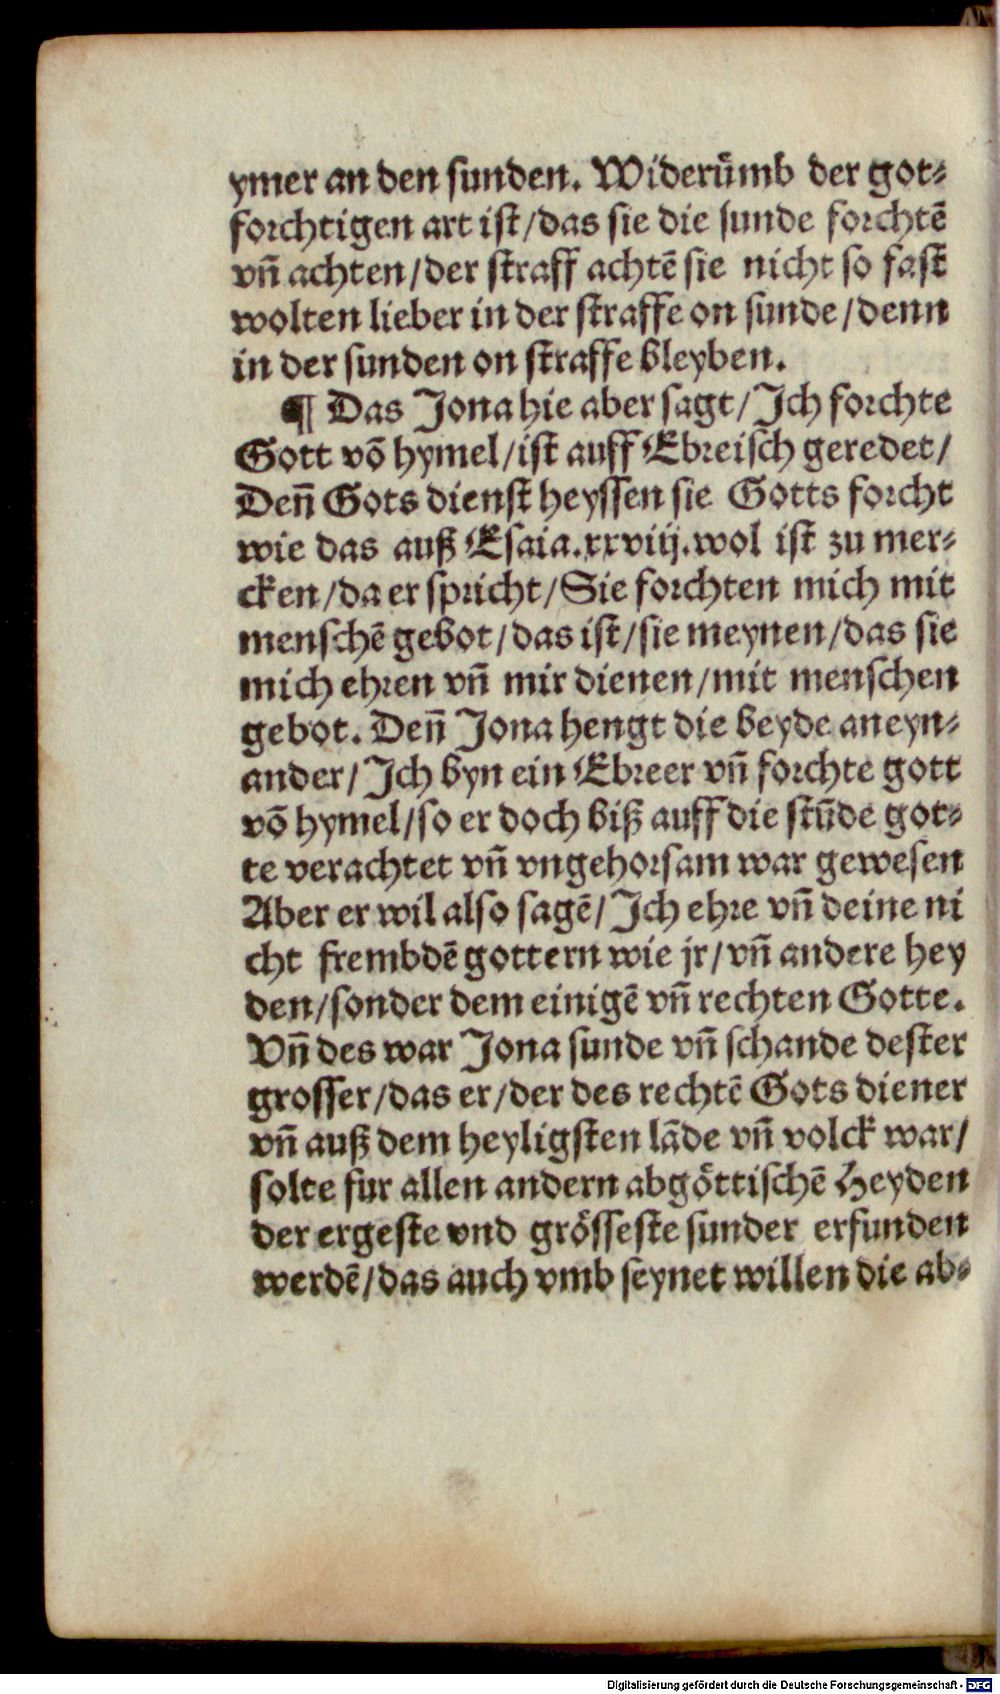 ymer an den sunden. Widerůmb der got⸗
forchtigen art ist/das sie die sunde forchtē
vñ achten/der straff achtē sie nicht so fast
wolten lieber in der straffe on sunde/denn
in der sunden on straffe bleyben.
¶ Das Jona hie aber sagt/Ich forchte
Gott võ hymel/ist auff Ebreisch geredet/
Deñ Gots dienst heyssen sie Gotts forcht
wie das auß Esaia.xxviij.wol ist zu mer⸗
cken/da er spricht/Sie forchten mich mit
menschē gebot/das ist/sie meynen/das sie
mich ehren vñ mir dienen/mit menschen
gebot. Deñ Jona hengt die beyde aneyn⸗
ander/Ich byn ein Ebreer vñ forchte gott
võ hymel/so er doch biß auff die stũde got⸗
te verachtet vñ vngehorsam war gewesen
Aber er wil also sagē/Ich ehre vñ deine ni
cht frembdē gottern wie jr/vñ andere hey
den/sonder dem einigē vñ rechten Gotte.
Vñ des war Jona sunde vñ schande dester
grosser/das er/der des rechtē Gots diener
vñ auß dem heyligsten lãde vñ volck war/
solte fur allen andern abgöttischē Heyden
der ergeste vnd grösseste sunder erfunden
werdē/das auch vmb seynet willen die ab⸗
Digitalisierung gefördert durch die Deutsche Forschungsgemeinschaft - DFG